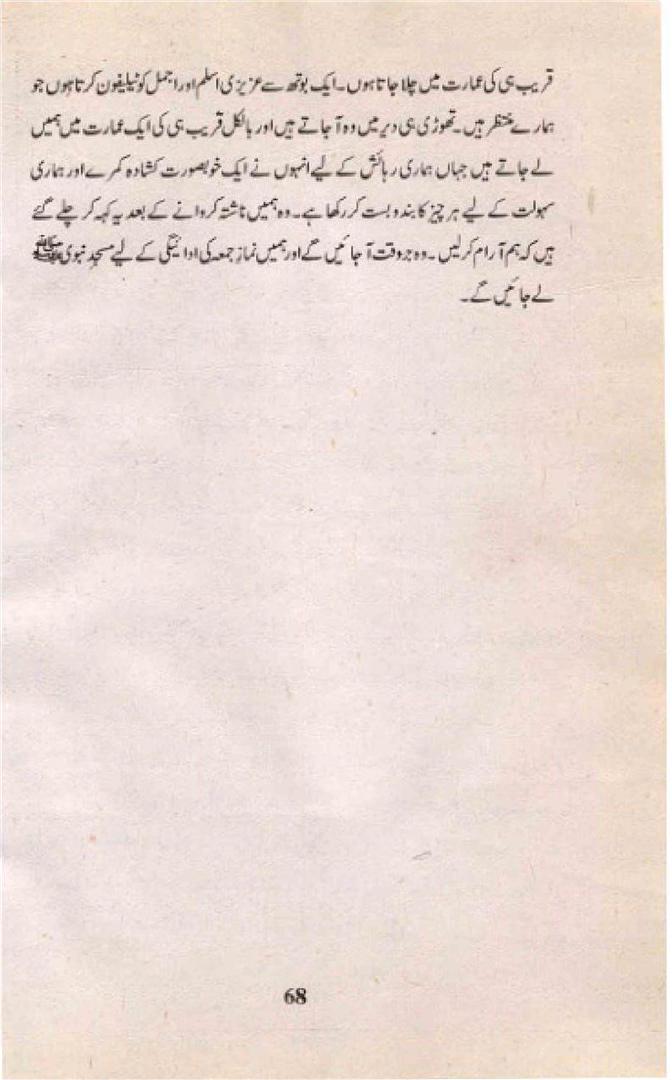 قریب ہی کی عمارت میں چلا جاتا ہوں۔ ایک بوتھ سے عزیزی اسلم اور اجمل کو ٹیلیفون کرتا ہوں جو
ہمارے منتظر ہیں۔ تھوڑی ہی دیر میں وہ آ جاتے ہیں اور بالکل قریب ہی کی ایک عمارت میں ہمیں
لے جاتے ہیں جہاں ہماری رہائش کے لیے انہوں نے ایک خوبصورت کشادہ کمرے اور ہماری
سہولت کے لیے ہر چیز کا بندوبست کر رکھا ہے۔ وہ ہمیں ناشتہ کروانے کے بعد یہ کہہ کر چلے گئے
ہیں کہ ہم آرام کر لیں۔ وہ بروقت آ جائیں گے اور ہمیں نمازِ جمعہ کی ادائیگی کے لیے مسجدِ نبوی ﷺ
لے جائیں گے۔
68